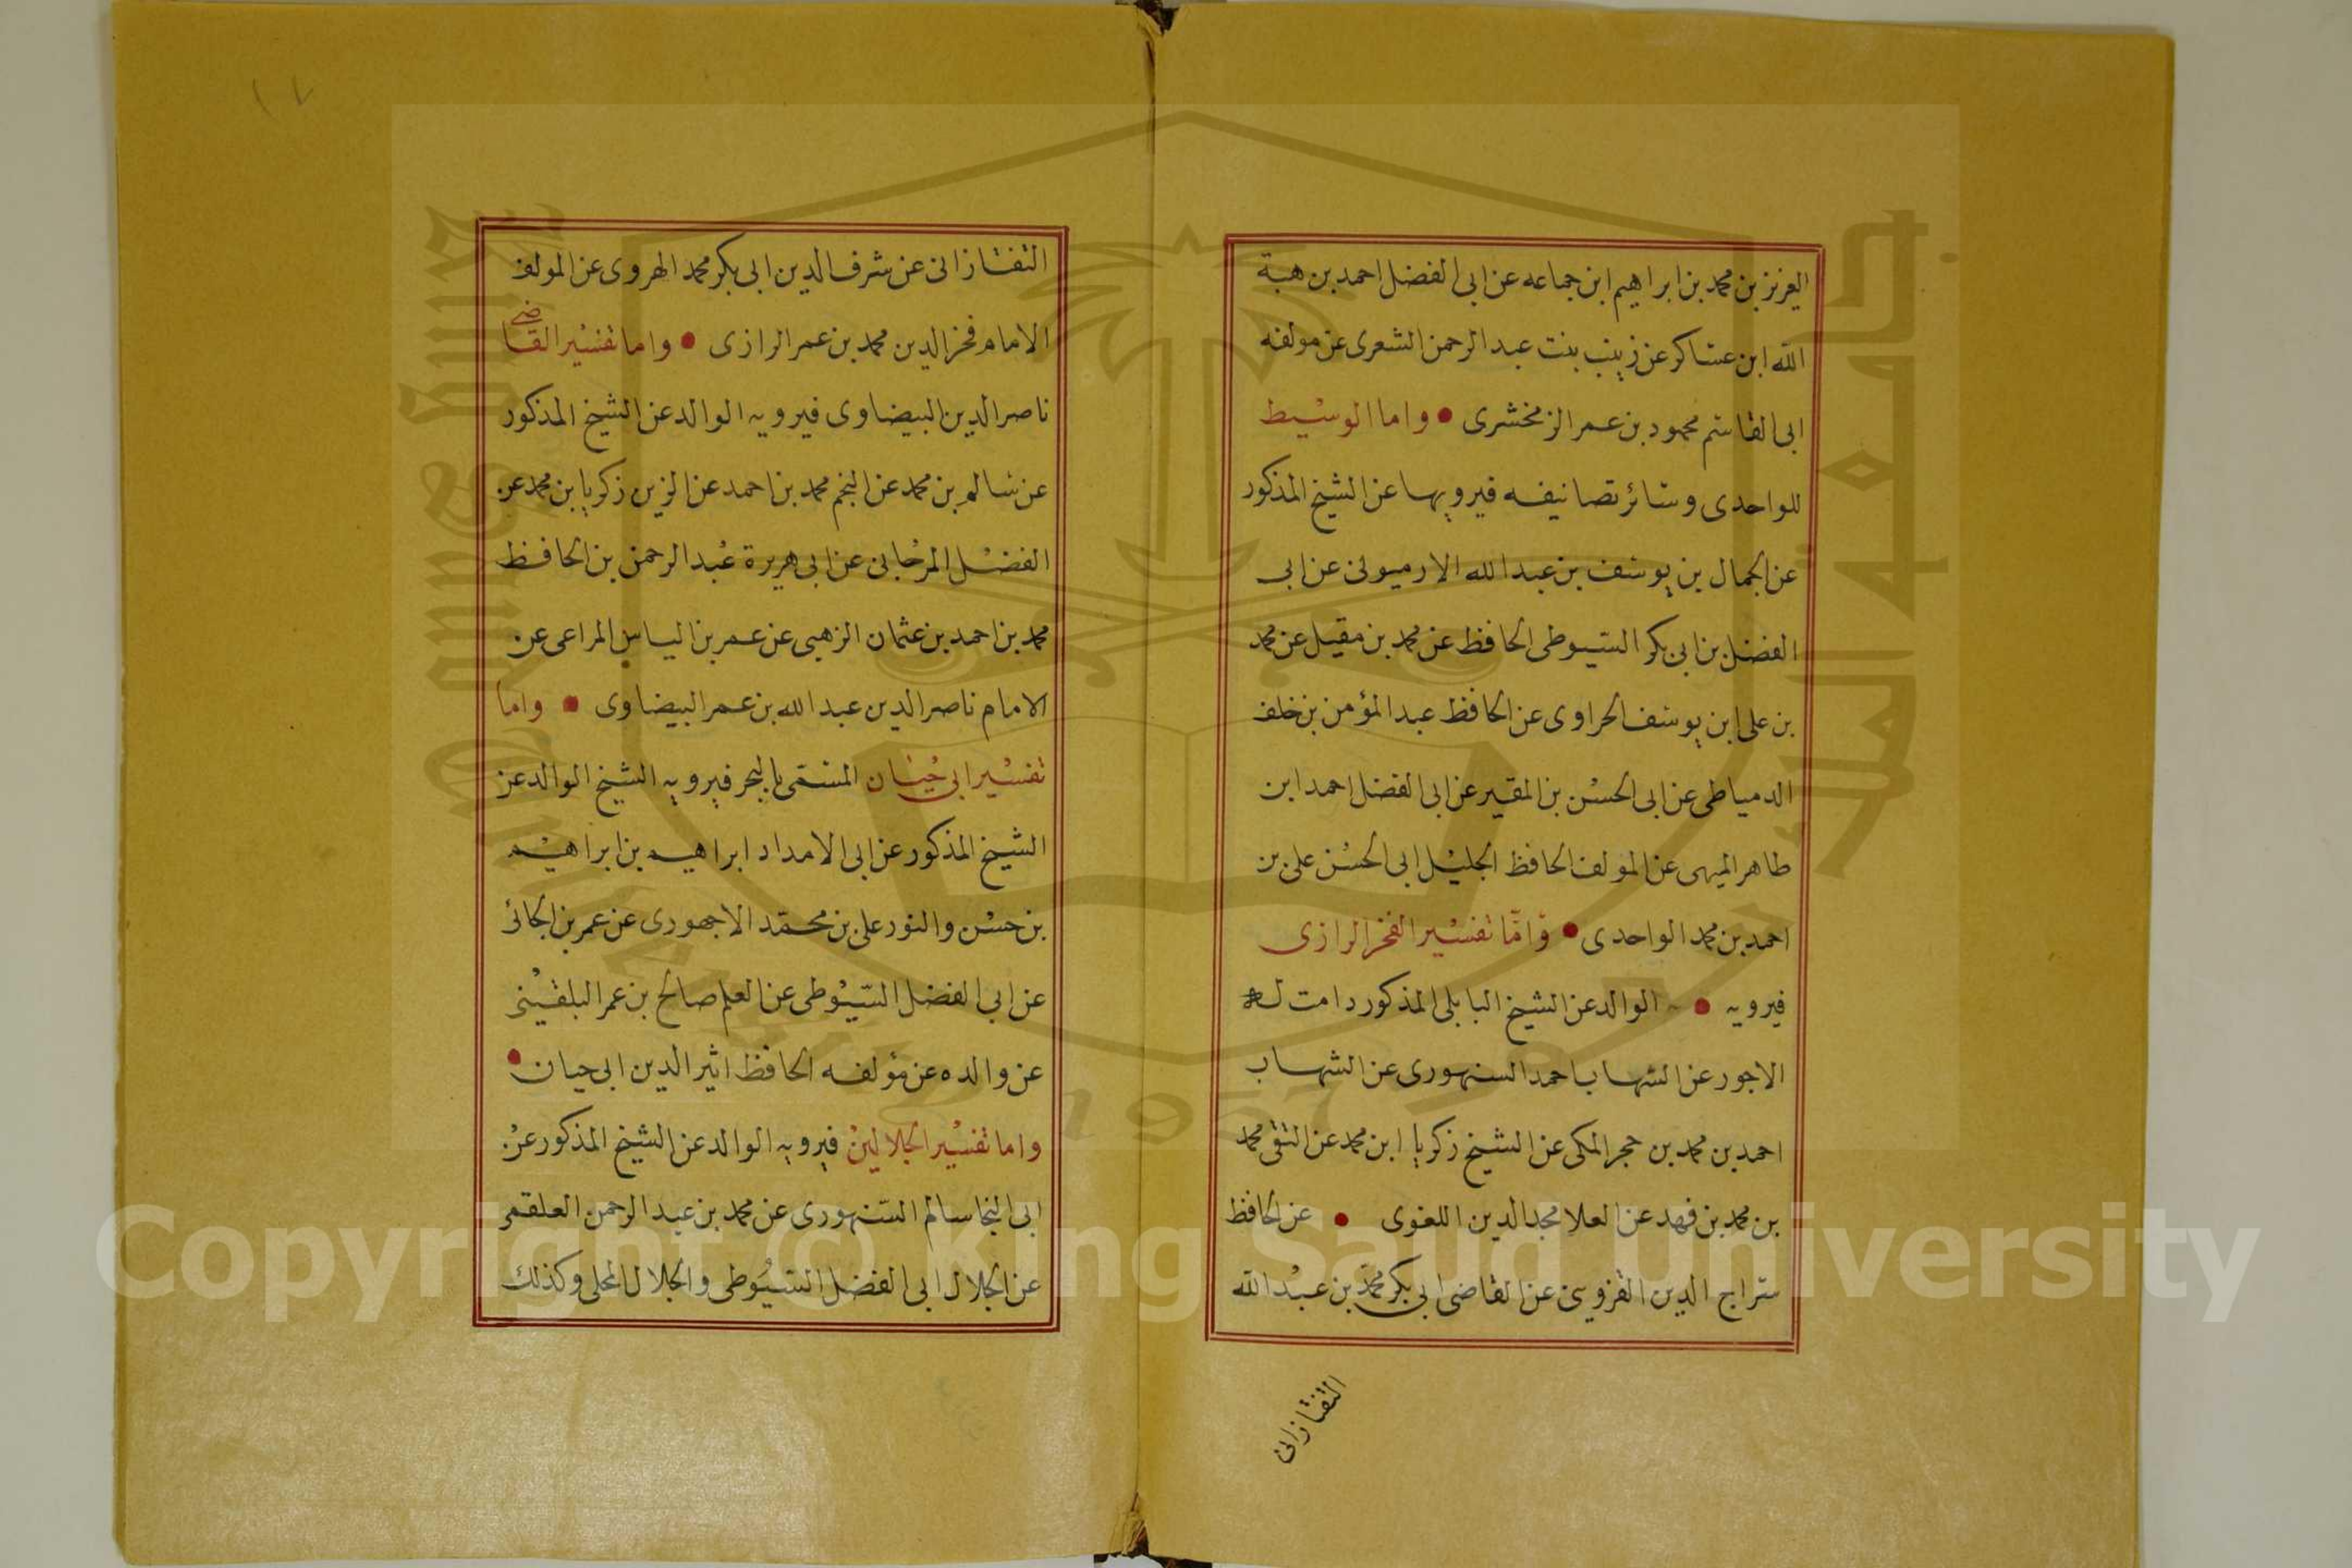 العزيز بن محمد بن ابراهيم ابن جماعه عن ابى الفضل احمد بن هبة
الله ابن عساكر عن زينب بنت عبد الرحمن الشعرى عن مولفه
ابى القاسم محمود بن عمر الزمخشرى • واما الوسيط
للواحدى وسائر تصانيفه فيرويها عن الشيخ المذكور
عن الجمال بن يوسف بن عبد الله الارميونى عن ابى
الفضل بن ابى بكر السيوطى الحافظ عن محمد بن مقيل عن محمد
بن على ابن يوسف الحراوى عن الحافظ عبد المؤمن بن خلف
الدمياطى عن ابى الحسن بن المقير عن ابى الفضل احمد ابن
طاهر الميهى عن المولف الحافظ الجليل ابى الحسن على بن
احمد بن محمد الواحدى • وامّا تفسير الفخر الرازى
فيرويه • الوالد عن الشيخ البابلى المذكور دامت له
الاجور عن الشهاب احمد السنهورى عن الشهاب
احمد بن محمد بن حجر المكى عن الشيخ زكريا ابن محمد عن التقى محمد
بن محمد بن فهد عن العلا مجد الدين اللغوى • عن الحافظ
سراج الدين القزوينى عن القاضى ابى بكر محمد بن عبد الله
التفتازانى
١٧
التفتازانى عن شرف الدين ابى بكر محمد الهروى عن المولف
الامام فخر الدين محمد بن عمر الرازى • واما تفسير القاضى
ناصر الدين البيضاوى فيرويه الوالد عن الشيخ المذكور
عن سالم بن محمد عن النجم محمد بن احمد عن الزين زكريا بن محمد عن
الفضل المرجانى عن ابى هريرة عبد الرحمن بن الحافظ
محمد بن احمد بن عثمان الزهبى عن عمر بن الياس المراعى عن
الامام ناصر الدين عبد الله بن عمر البيضاوى • واما
تفسير ابى حيان المسمى بالبحر فيرويه الشيخ الوالد عن
الشيخ المذكور عن ابى الامداد ابراهيم بن ابراهيم
بن حسن والنور على بن محمّد الاجهورى عن عمر بن الجائى
عن ابى الفضل السّيوطى عن العلم صالح بن عمر البلقينى
عن والده عن مؤلفه الحافظ اثير الدين ابى حيان •
واما تفسير الجلالين فيرويه الوالد عن الشيخ المذكور عن
ابى النجا سالم السّنهورى عن محمد بن عبد الرحمن العلقمى
عن الجلال ابى الفضل السيوطى والجلال المحلى وكذلك
Copyright © King Saud University
1957